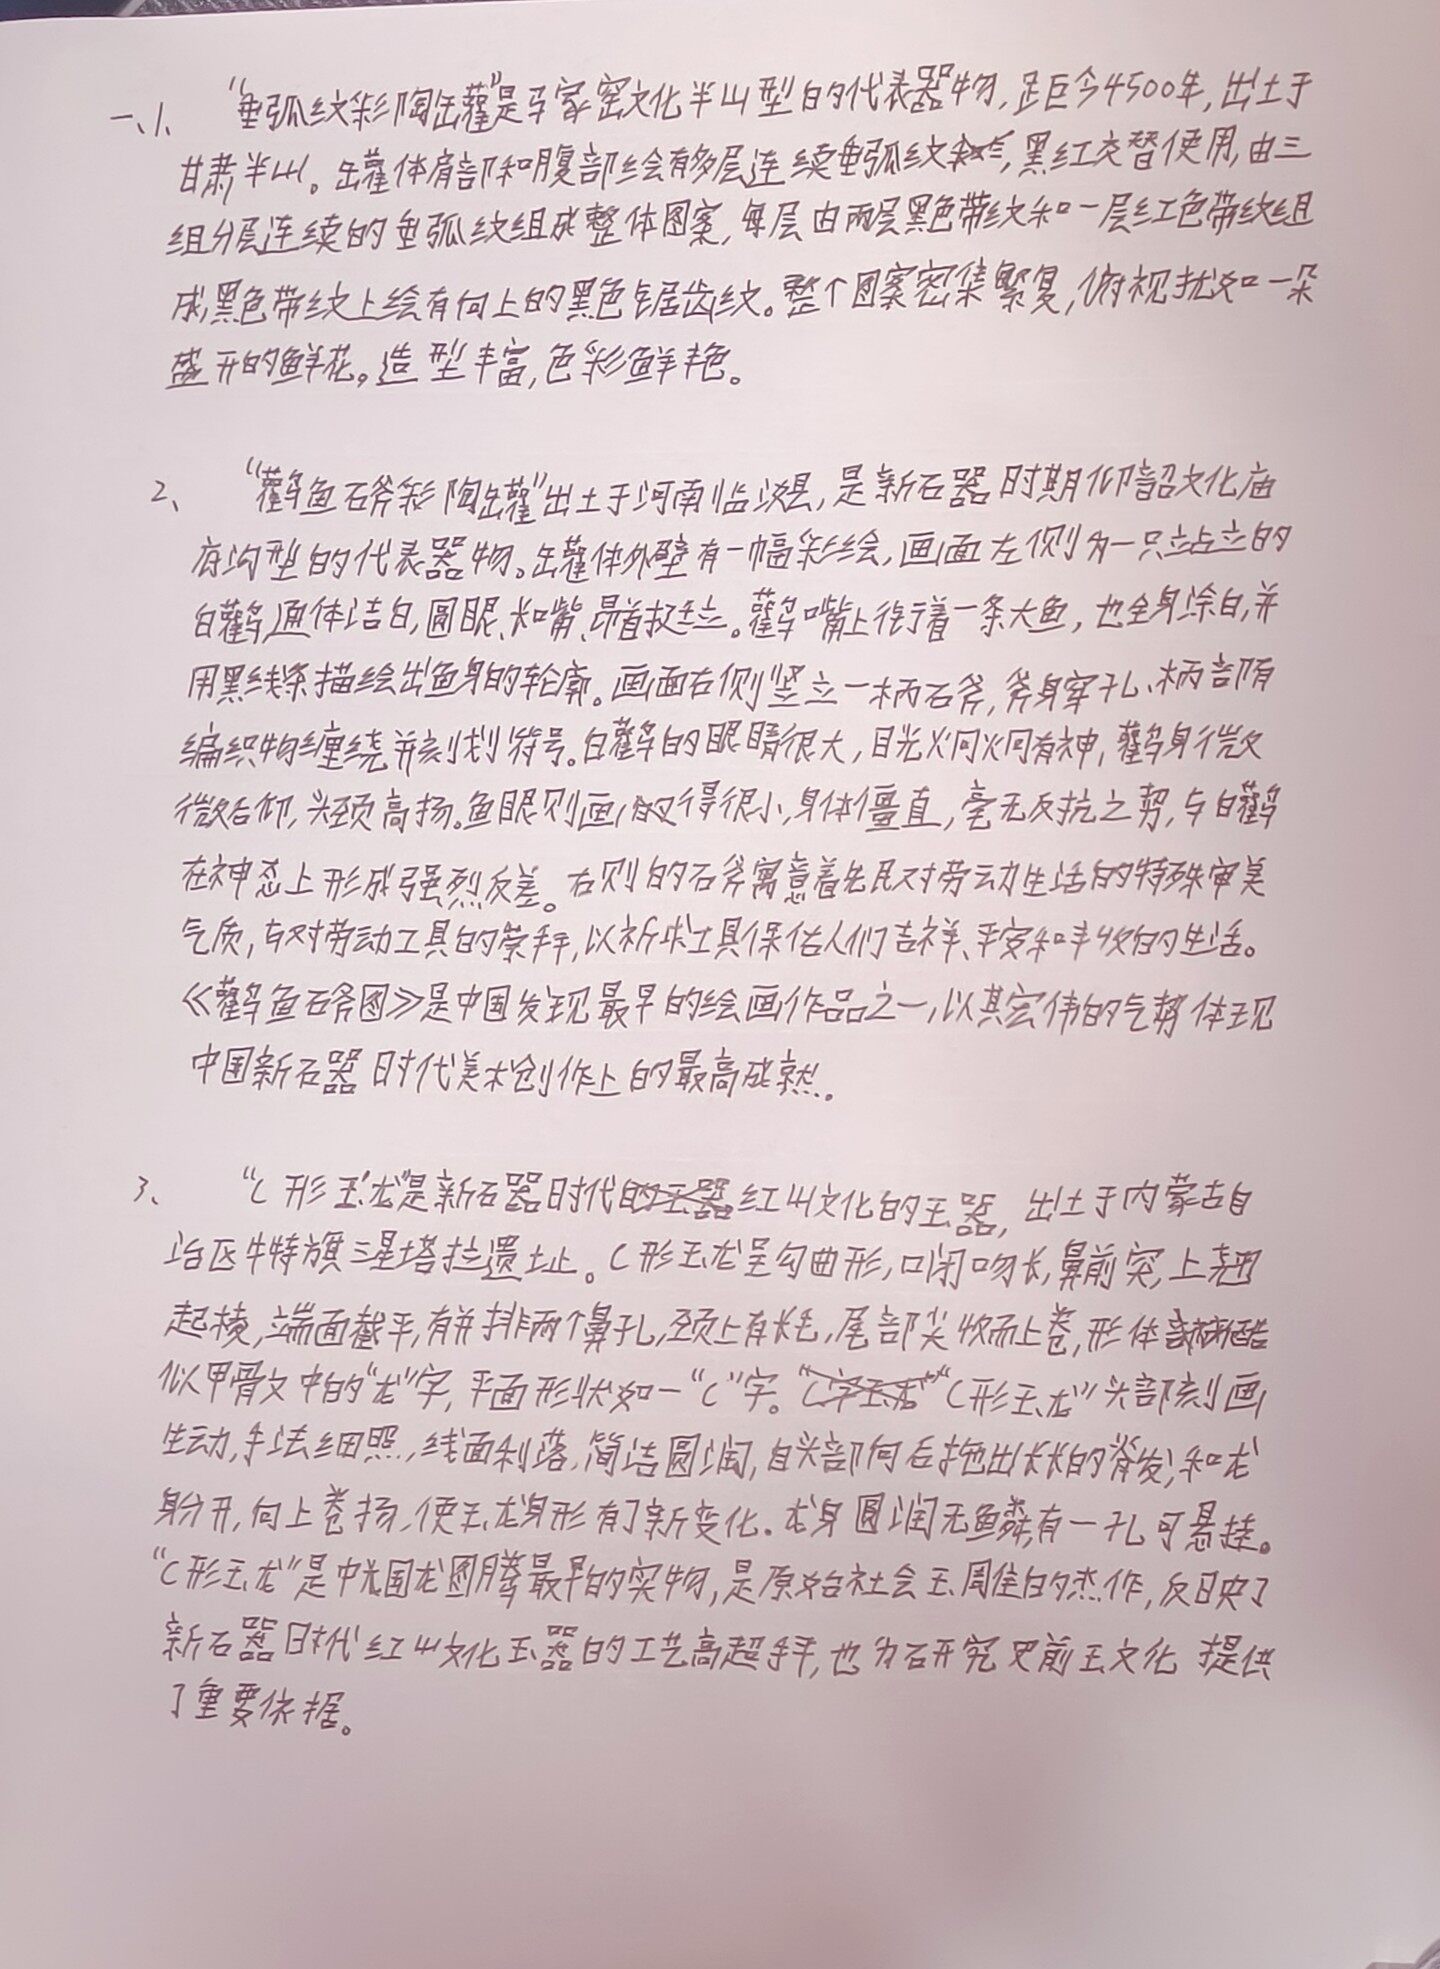 一、1、 “垂弧纹彩陶罐”是马家窑文化半山型的代表器物，距今4500年，出土于
甘肃半山。罐体肩部和腹部绘有多层连续垂弧纹，黑红交替使用，由三
组分层连续的垂弧纹组成整体图案，每层由两层黑色带纹和一层红色带纹组
成，黑色带纹上绘有向上的黑色锯齿纹。整个图案密集繁复，俯视犹如一朵
盛开的鲜花。造型丰富，色彩鲜艳。
2、 “鹳鱼石斧彩陶罐”出土于河南临汝县，是新石器时期仰韶文化庙
底沟型的代表器物。罐体外壁有一幅彩绘，画面左侧为一只站立的
白鹳，通体洁白，圆眼、长嘴、昂首挺立。鹳嘴上衔着一条大鱼，也全身涂白，并
用黑线条描绘出鱼身的轮廓。画面右侧竖立一柄石斧，斧身穿孔、柄部有
编织物缠绕并刻划符号。白鹳的眼睛很大，目光炯炯有神，鹳身微
微后仰，头颈高扬。鱼眼则画的得很小，身体僵直，毫无反抗之势，与白鹳
在神态上形成强烈反差。右则的石斧寓意着先民对劳动生活的特殊审美
气质，与对劳动工具的崇拜，以祈求工具保佑人们吉祥、平安和丰收的生活。
《鹳鱼石斧图》是中国发现最早的绘画作品之一，以其宏伟的气势体现
中国新石器时代美术创作上的最高成就。
3、 “C形玉龙”是新石器时代红山文化的玉器，出土于内蒙古自
治区牛特旗三星塔拉遗址。C形玉龙呈勾曲形，口闭吻长，鼻前突，上翘
起棱，端面截平，有并排两个鼻孔，颈上有长毛，尾部尖收而上卷，形体酷
似甲骨文中的“龙”字，平面形状如一“C”字。“C形玉龙”头部刻画
生动，手法细照，线面利落，简洁圆润，自头部向后拖出长长的脊发，和龙
身分开，向上卷扬，使玉龙身形有了新变化。龙身圆润无鳞，有一孔可悬挂。
“C形玉龙”是中国龙图腾最早的实物，是原始社会玉雕的杰作，反映了
新石器时代红山文化玉器的工艺高超手，也为研究史前玉文化提供
了重要依据。